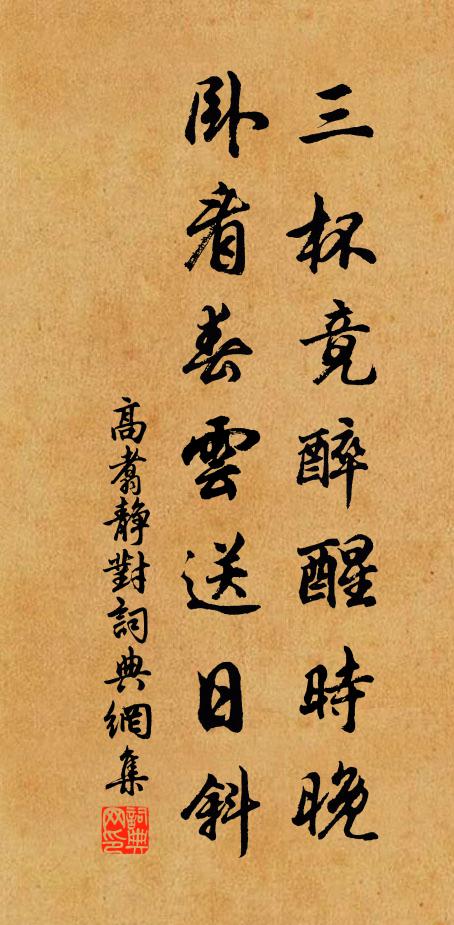 三杯竟醉醒時晚
卧看春雲送日斜
高翥靜對詞典網集
詞典
网印